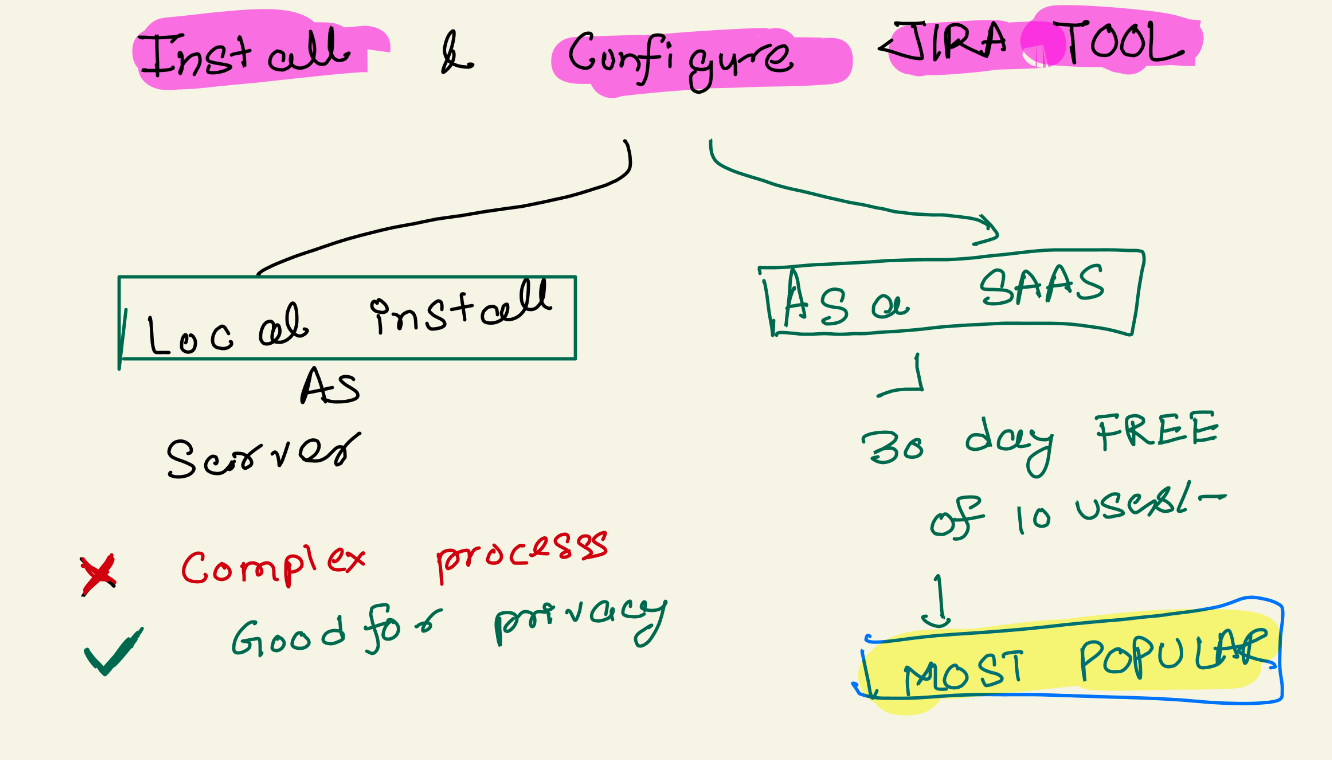 Install & Configure JIRA TOOL
Local install
As
Server
Complex process
Good for privacy
As a SAAS
30 day FREE
of 10 users/-
MOST POPULAR